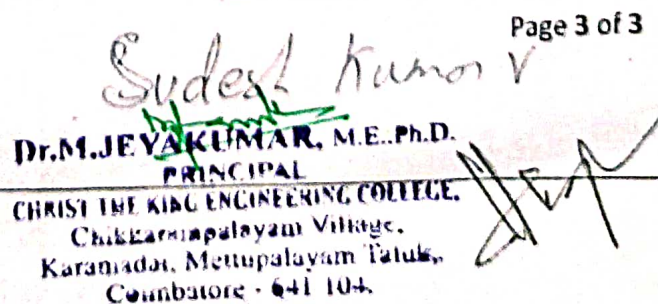 Page 3 of 3
Sudesh Kumar V
Dr.M.JEYAKUMAR, M.E.,Ph.D.
PRINCIPAL
CHRIST THE KING ENGINEERING COLLEGE,
Chikkarampalayam Village,
Karamadai, Mettupalayam Taluk,
Coimbatore - 641 104.